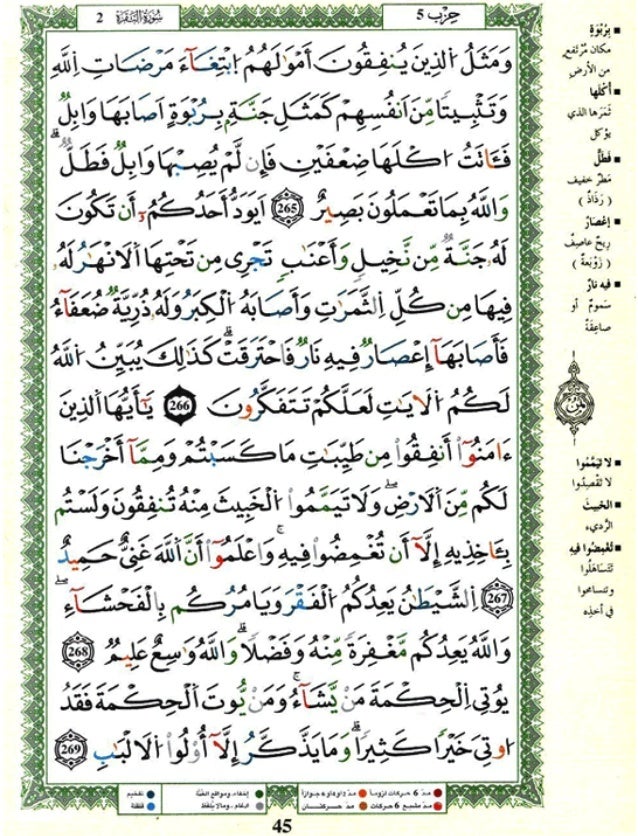 سُورَةُ البَقَرَة 2
حِزْب 5
وَمَثَلُ اُلذِينَ يُنفِقُونَ أَمْوَٰلَهُمُ اُبْتِغَآءَ مَرْضَاتِ اِللَّهِ
وَتَثْبِيتاٗ مِّنَ اَنفُسِهِمْ كَمَثَلِ جَنَّةِۢ بِرُبْوَةٍ اَصَابَهَا وَابِلٞ
فَـَٔاتَتُ ا۟كْلَهَا ضِعْفَيْنِ فَإِن لَّمْ يُصِبْهَا وَابِلٞ فَطَلّٞۖ
وَاللَّهُ بِمَا تَعْمَلُونَ بَصِيرٌ 265 اَيَوَدُّ أَحَدُكُمُۥٓ أَن تَكُونَ
لَهُۥ جَنَّةٞ مِّن نَّخِيلٖ وَأَعْنَٰبٖ تَجْرِى مِن تَحْتِهَا اَلَانْهَٰرُ لَهُۥ
فِيهَا مِن كُلِّ اِلثَّمَرَٰتِ وَأَصَابَهُ اُلْكِبَرُ وَلَهُۥ ذُرِّيَّةٞ ضُعَفَآءُ
فَأَصَابَهَآ إِعْصَارٞ فِيهِ نَارٞ فَاحْتَرَقَتْۖ كَذَٰلِكَ يُبَيِّنُ اُللَّهُ
لَكُمُ اُلَايَٰتِ لَعَلَّكُمْ تَتَفَكَّرُونَ 266 يَٰٓأَيُّهَا اَلذِينَ
ءَامَنُوٓاْ أَنفِقُواْ مِن طَيِّبَٰتِ مَا كَسَبْتُمْ وَمِمَّآ أَخْرَجْنَا
لَكُم مِّنَ اَلَارْضِۖ وَلَا تَيَمَّمُواْ اُلْخَبِيثَ مِنْهُ تُنفِقُونَ وَلَسْتُم
بِـَٔاخِذِيهِ إِلَّآ أَن تُغْمِضُواْ فِيهِۖ وَاعْلَمُوٓاْ أَنَّ اَللَّهَ غَنِىٌّ حَمِيدٌ
267 اِلشَّيْطَٰنُ يَعِدُكُمُ اُلْفَقْرَ وَيَامُرُكُم بِالْفَحْشَآءِۖ
وَاللَّهُ يَعِدُكُم مَّغْفِرَةٗ مِّنْهُ وَفَضْلاٗۖ وَاللَّهُ وَٰسِعٌ عَلِيمٞ 268
يُوتِى اِلْحِكْمَةَ مَنْ يَّشَآءُۖ وَمَنْ يُّوتَ اَلْحِكْمَةَ فَقَدُ
ا۟وتِىَ خَيْراٗ كَثِيراٗۖ وَمَا يَذَّكَّرُ إِلَّآ أُوْلُواْ اُلَالْبَٰبِ 269
■ بِرُبْوَةٍ
مكان مُرتفع
من الأرض
■ أُكْلَهَا
ثَمَرها الذي
يؤكل
■ فَطَلٌّ
مَطَر خفيف
( رَذَاذٌ )
■ إِعْصَارٌ
رِيحٌ عاصِفٌ
( زَوْبَعَةٌ )
■ فيه نارٌ
سَمُومٌ أو
صاعِقَةٌ
ثمن
■ لا تَيَمَّمُوا
لا تَقْصِدُوا
■ الخبيثَ
الرَّديء
■ تُغْمِضُوا فيهِ
تَتَسَاهَلُوا
وتتسامحوا
في أخْذِه
مدّ 6 حركات لزوماً
مدّ 2 أو 4 أو 6 جوازاً
إخفاء، ومواقع الغُنَّة
تفخيم
مدّ مشبع 6 حركات
مدّ حركتان
ادغام، وما لا يُلفَظ
قلقلة
45